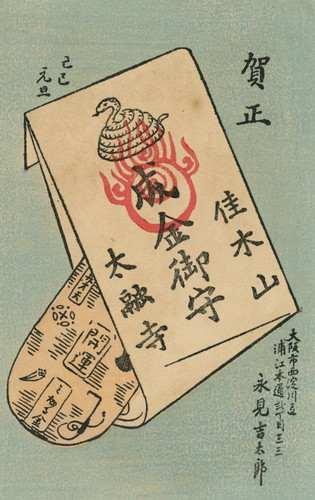 賀正
己巳
元旦
佳木山
成金御守
太融寺
開運
大阪市西淀川区
浦江本通
永見吉太郎